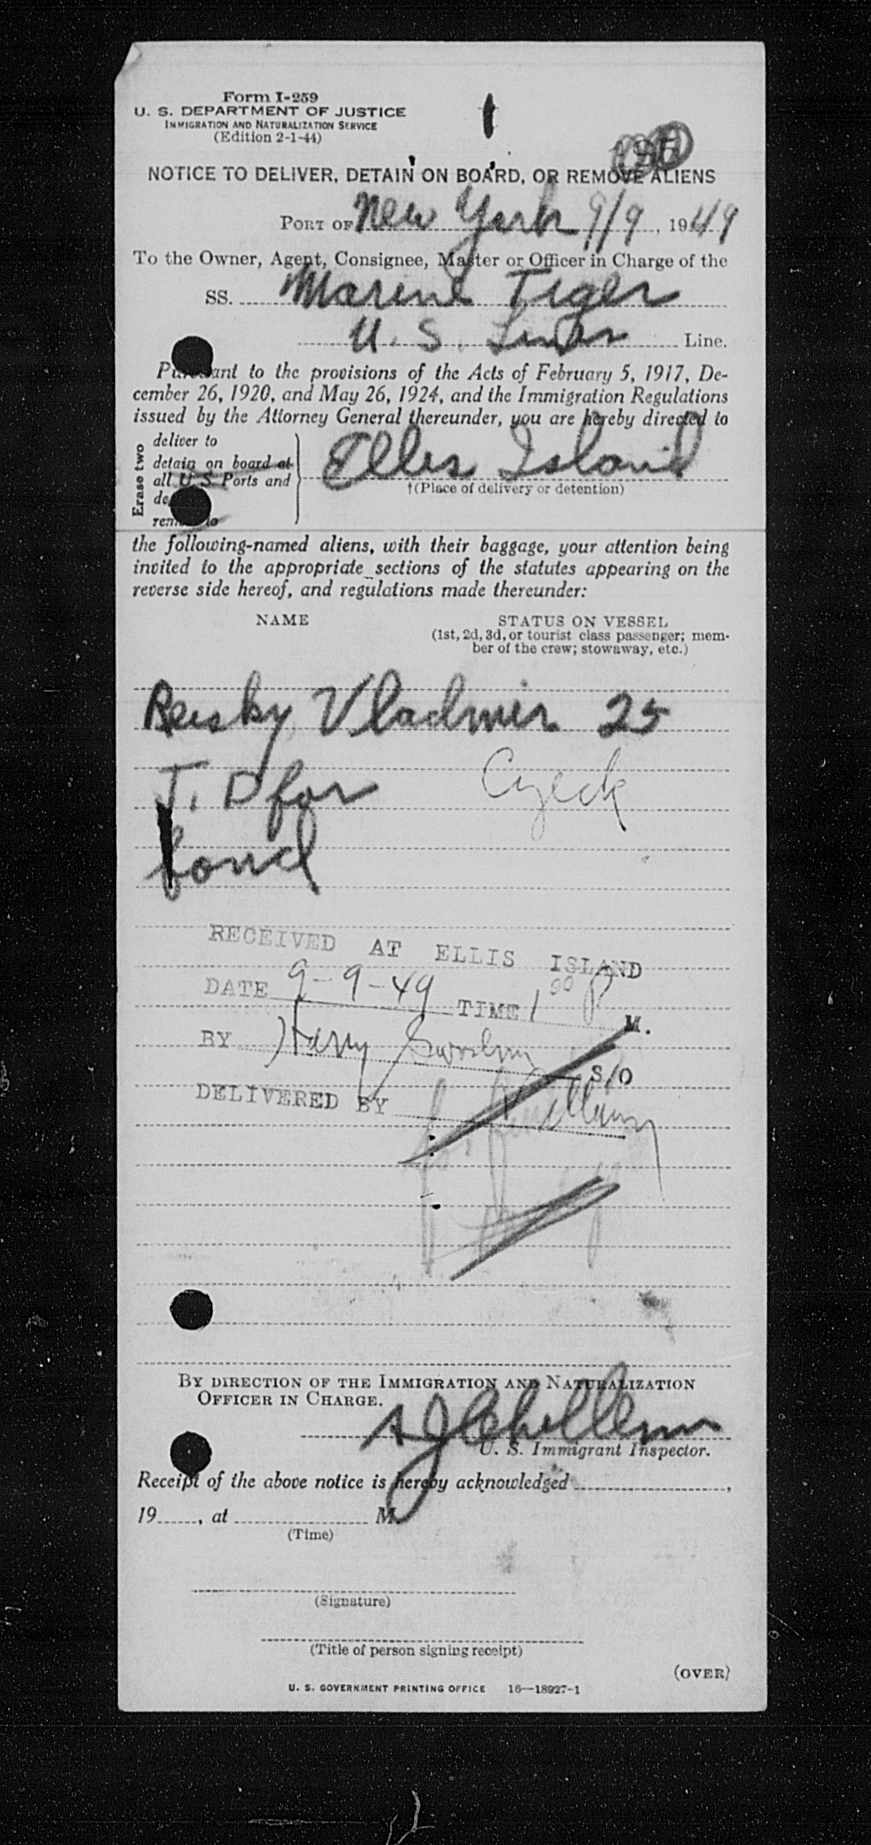 Form I-259
U. S. DEPARTMENT OF JUSTICE
IMMIGRATION AND NATURALIZATION SERVICE
(Edition 2-1-44)
NOTICE TO DELIVER, DETAIN ON BOARD, OR REMOVE ALIENS
PORT OF New York 9/9, 1949
To the Owner, Agent, Consignee, Master or Officer in Charge of the
SS. Marine Tiger
U. S. Lines Line.
Pursuant to the provisions of the Acts of February 5, 1917, De-
cember 26, 1920, and May 26, 1924, and the Immigration Regulations
issued by the Attorney General thereunder, you are hereby directed to
Erase two
deliver to
detain on board at
all U. S. Ports and
de
remove to
Ellis Island
†(Place of delivery or detention)
the following-named aliens, with their baggage, your attention being
invited to the appropriate sections of the statutes appearing on the
reverse side hereof, and regulations made thereunder:
NAME STATUS ON VESSEL
(1st, 2d, 3d, or tourist class passenger; mem-
ber of the crew; stowaway, etc.)
Reisky, Vladmir 25
T. D for Czeck
bond
RECEIVED AT ELLIS ISLAND
DATE 9-9-49 TIME 1 00 P M.
BY Harry S/O
DELIVERED BY
BY DIRECTION OF THE IMMIGRATION AND NATURALIZATION
OFFICER IN CHARGE.
U. S. Immigrant Inspector.
Receipt of the above notice is hereby acknowledged ,
19 , at M.
(Time)
(Signature)
(Title of person signing receipt)
(OVER)
U. S. GOVERNMENT PRINTING OFFICE 16—18927-1